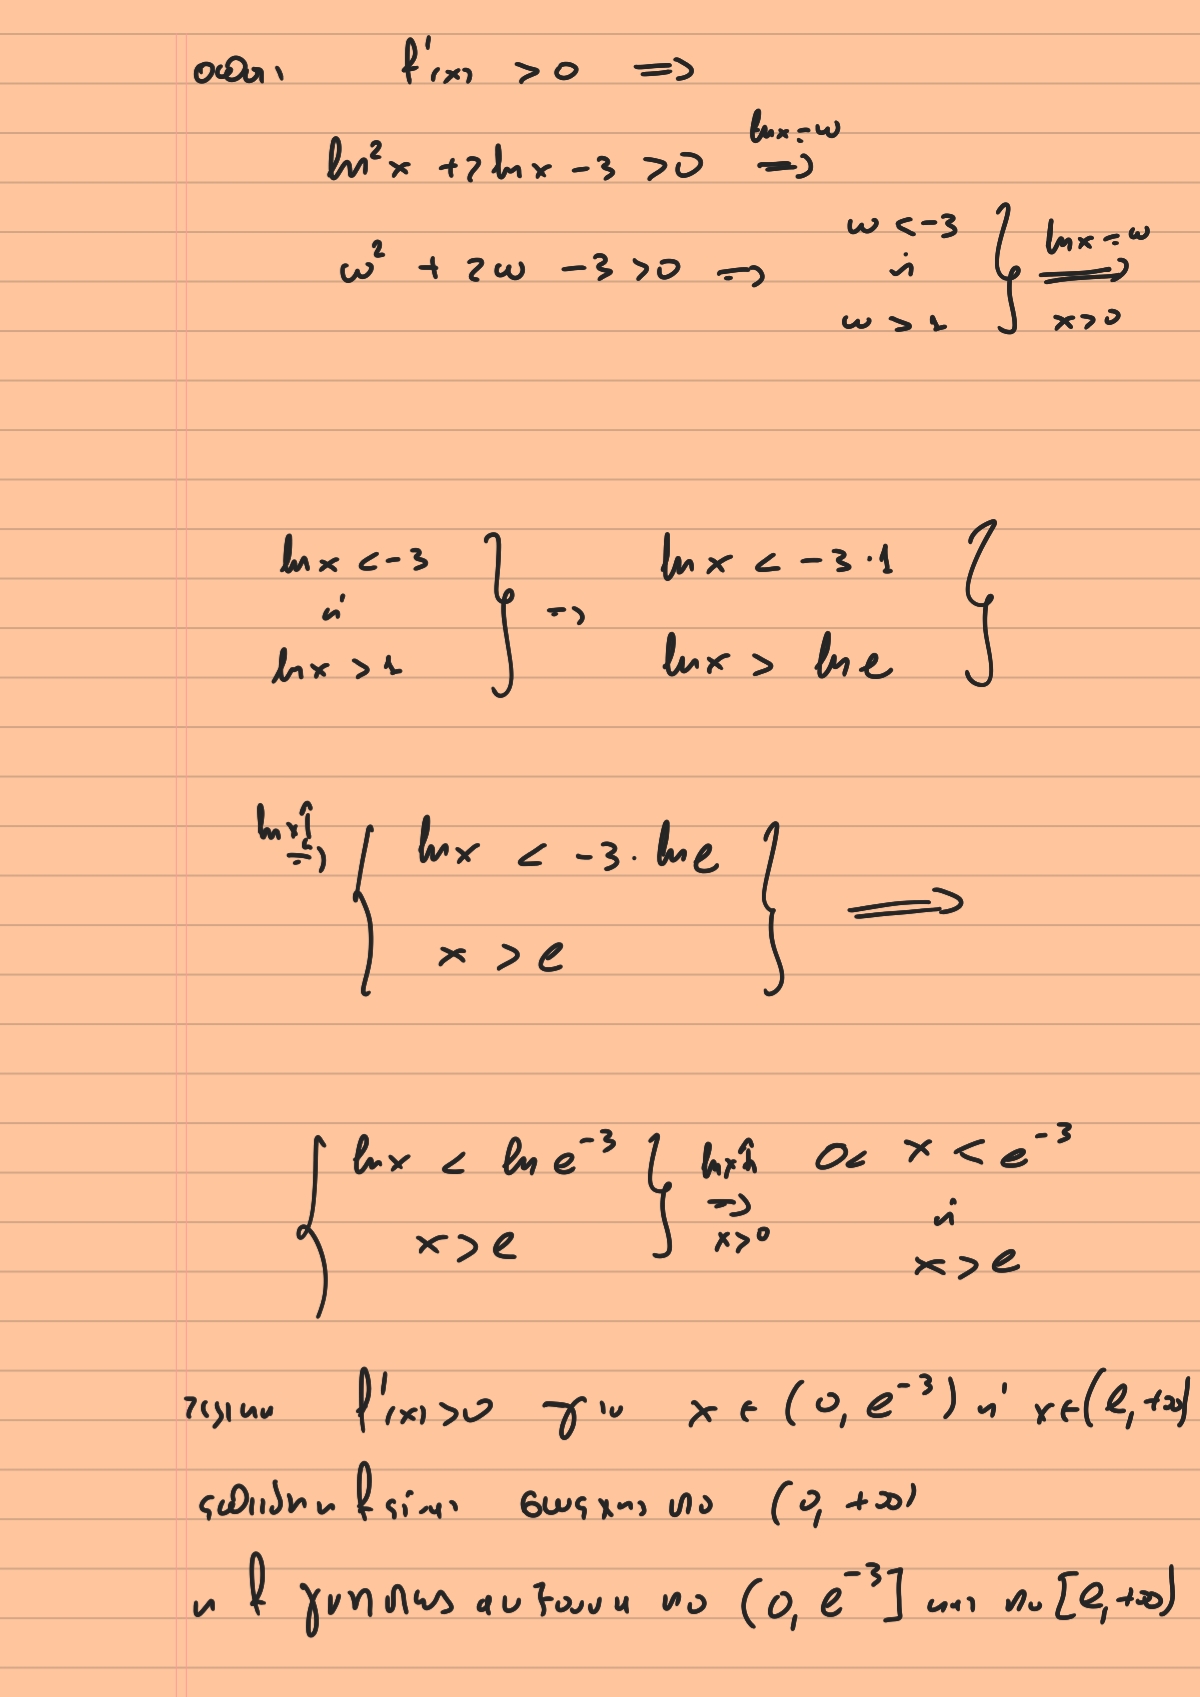 όταν f'(x) > 0 =>
ln²x + 2lnx - 3 > 0 =>^{lnx = ω}
ω² + 2ω - 3 > 0 => ω < -3 ή ω > 1 } =>^{lnx = ω}_{x>0}
lnx < -3 } => lnx < -3·1 }
ή
lnx > 1 lnx > lne
lnx↑ => { lnx < -3·lne } =>
x > e
{ lnx < lne⁻³ } lnx↑ => 0< x < e⁻³
x>0 ή
x > e x > e
f'(x) > 0 για x ∈ (0, e⁻³) ή x ∈ (e, +∞)
επειδή η f είναι συνεχής στο (0, +∞)
η f γνησίως αύξουσα στο (0, e⁻³] και στο [e, +∞)